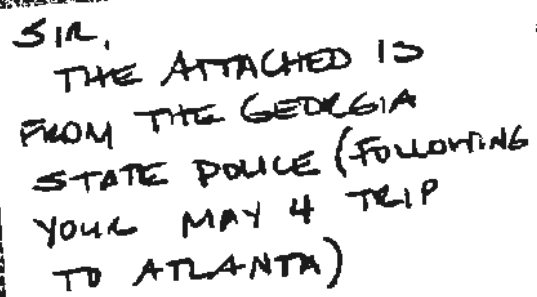 SIR,
THE ATTACHED IS
FROM THE GEORGIA
STATE POLICE (FOLLOWING
YOUR MAY 4 TRIP
TO ATLANTA)